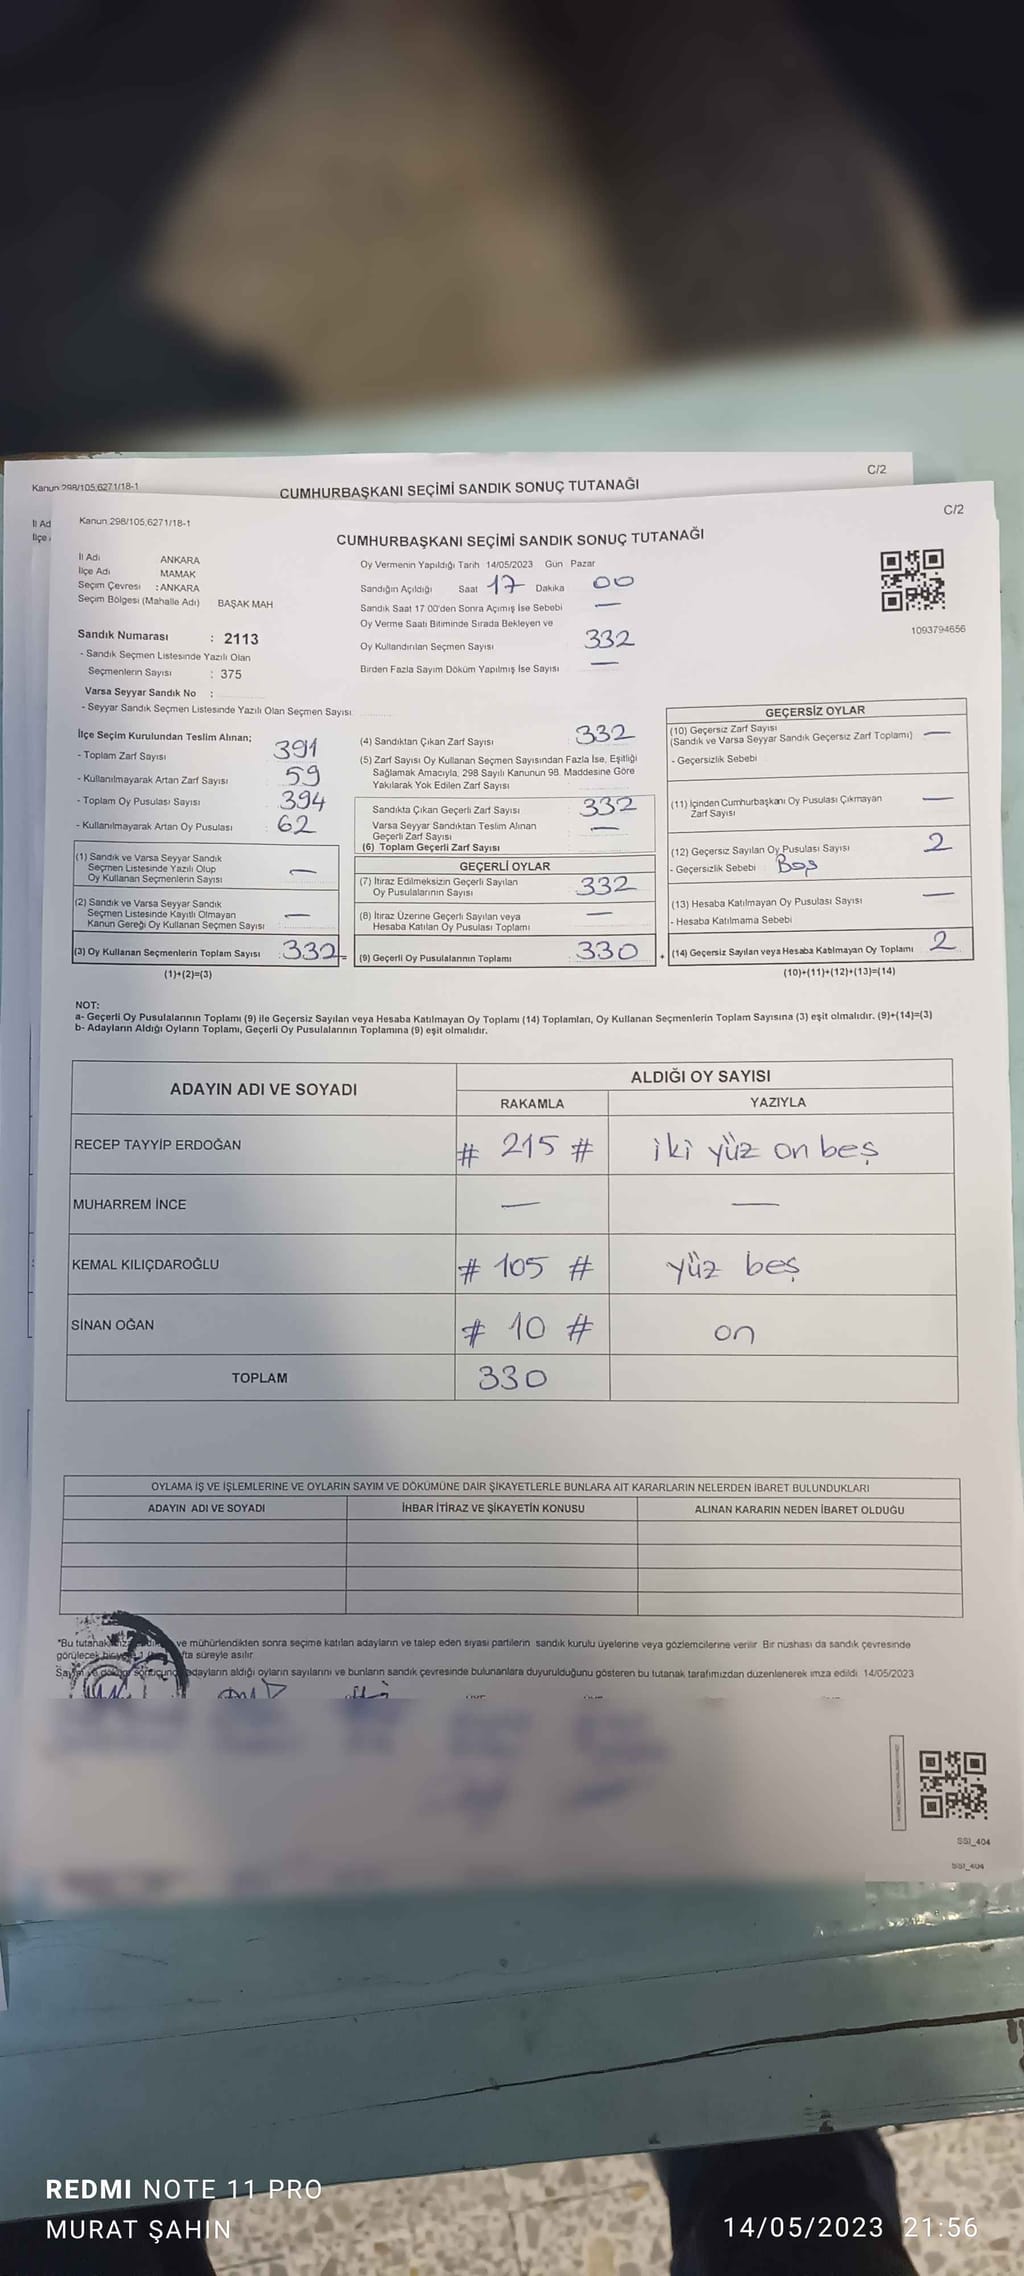 C/2
Kanun 298/105,6271/18-1
CUMHURBAŞKANI SEÇİMİ SANDIK SONUÇ TUTANAĞI
İl Ad
İlçe
C/2
Kanun 298/105,6271/18-1
CUMHURBAŞKANI SEÇİMİ SANDIK SONUÇ TUTANAĞI
İl Adı ANKARA
İlçe Adı MAMAK
Seçim Çevresi : ANKARA
Seçim Bölgesi (Mahalle Adı) BAŞAK MAH
Sandık Numarası : 2113
- Sandık Seçmen Listesinde Yazılı Olan
Seçmenlerin Sayısı : 375
Varsa Seyyar Sandık No :
- Seyyar Sandık Seçmen Listesinde Yazılı Olan Seçmen Sayısı
Oy Vermenin Yapıldığı Tarih 14/05/2023 Gün Pazar
Sandığın Açıldığı Saat 17 Dakika 00
Sandık Saat 17 00'den Sonra Açılmış İse Sebebi —
Oy Verme Saati Bitiminde Sırada Bekleyen ve
Oy Kullandırılan Seçmen Sayısı 332
Birden Fazla Sayım Döküm Yapılmış İse Sayısı —
1093794656
İlçe Seçim Kurulundan Teslim Alınan;
- Toplam Zarf Sayısı 391
- Kullanılmayarak Artan Zarf Sayısı 59
- Toplam Oy Pusulası Sayısı : 394
- Kullanılmayarak Artan Oy Pusulası : 62
(1) Sandık ve Varsa Seyyar Sandık
Seçmen Listesinde Yazılı Olup
Oy Kullanan Seçmenlerin Sayısı —
(2) Sandık ve Varsa Seyyar Sandık
Seçmen Listesinde Kayıtlı Olmayan
Kanun Gereği Oy Kullanan Seçmen Sayısı —
(3) Oy Kullanan Seçmenlerin Toplam Sayısı : 332 =
(1)+(2)=(3)
(4) Sandıktan Çıkan Zarf Sayısı 332
(5) Zarf Sayısı Oy Kullanan Seçmen Sayısından Fazla İse, Eşitliği
Sağlamak Amacıyla, 298 Sayılı Kanunun 98. Maddesine Göre
Yakılarak Yok Edilen Zarf Sayısı
Sandıkta Çıkan Geçerli Zarf Sayısı : 332
Varsa Seyyar Sandıktan Teslim Alınan
Geçerli Zarf Sayısı —
(6) Toplam Geçerli Zarf Sayısı
GEÇERLİ OYLAR
(7) İtiraz Edilmeksizin Geçerli Sayılan
Oy Pusulalarının Sayısı : 332
(8) İtiraz Üzerine Geçerli Sayılan veya
Hesaba Katılan Oy Pusulası Toplamı —
(9) Geçerli Oy Pusulalarının Toplamı : 330 +
GEÇERSİZ OYLAR
(10) Geçersiz Zarf Sayısı
(Sandık ve Varsa Seyyar Sandık Geçersiz Zarf Toplamı) —
- Geçersizlik Sebebi
(11) İçinden Cumhurbaşkanı Oy Pusulası Çıkmayan
Zarf Sayısı —
(12) Geçersiz Sayılan Oy Pusulası Sayısı 2
- Geçersizlik Sebebi Boş
(13) Hesaba Katılmayan Oy Pusulası Sayısı —
- Hesaba Katılmama Sebebi
(14) Geçersiz Sayılan veya Hesaba Katılmayan Oy Toplamı 2
(10)+(11)+(12)+(13)=(14)
NOT:
a- Geçerli Oy Pusulalarının Toplamı (9) ile Geçersiz Sayılan veya Hesaba Katılmayan Oy Toplamı (14) Toplamları, Oy Kullanan Seçmenlerin Toplam Sayısına (3) eşit olmalıdır. (9)+(14)=(3)
b- Adayların Aldığı Oyların Toplamı, Geçerli Oy Pusulalarının Toplamına (9) eşit olmalıdır.
ADAYIN ADI VE SOYADI ALDIĞI OY SAYISI
RAKAMLA YAZIYLA
RECEP TAYYİP ERDOĞAN # 215 # iki yüz on beş
MUHARREM İNCE — —
KEMAL KILIÇDAROĞLU # 105 # yüz beş
SİNAN OĞAN # 10 # on
TOPLAM 330
OYLAMA İŞ VE İŞLEMLERİNE VE OYLARIN SAYIM VE DÖKÜMÜNE DAİR ŞİKAYETLERLE BUNLARA AİT KARARLARIN NELERDEN İBARET BULUNDUKLARI
ADAYIN ADI VE SOYADI İHBAR İTİRAZ VE ŞİKAYETİN KONUSU ALINAN KARARIN NEDEN İBARET OLDUĞU
*Bu tutanak ve mühürlendikten sonra seçime katılan adayların ve talep eden siyasi partilerin sandık kurulu üyelerine veya gözlemcilerine verilir Bir nüshası da sandık çevresinde
görülecek süreyle asılır
adayların aldığı oyların sayılarını ve bunların sandık çevresinde bulunanlara duyurulduğunu gösteren bu tutanak tarafımızdan düzenlenerek imza edildi 14/05/2023
SSI_404
SSI_404
REDMI NOTE 11 PRO
MURAT ŞAHIN
14/05/2023 21:56